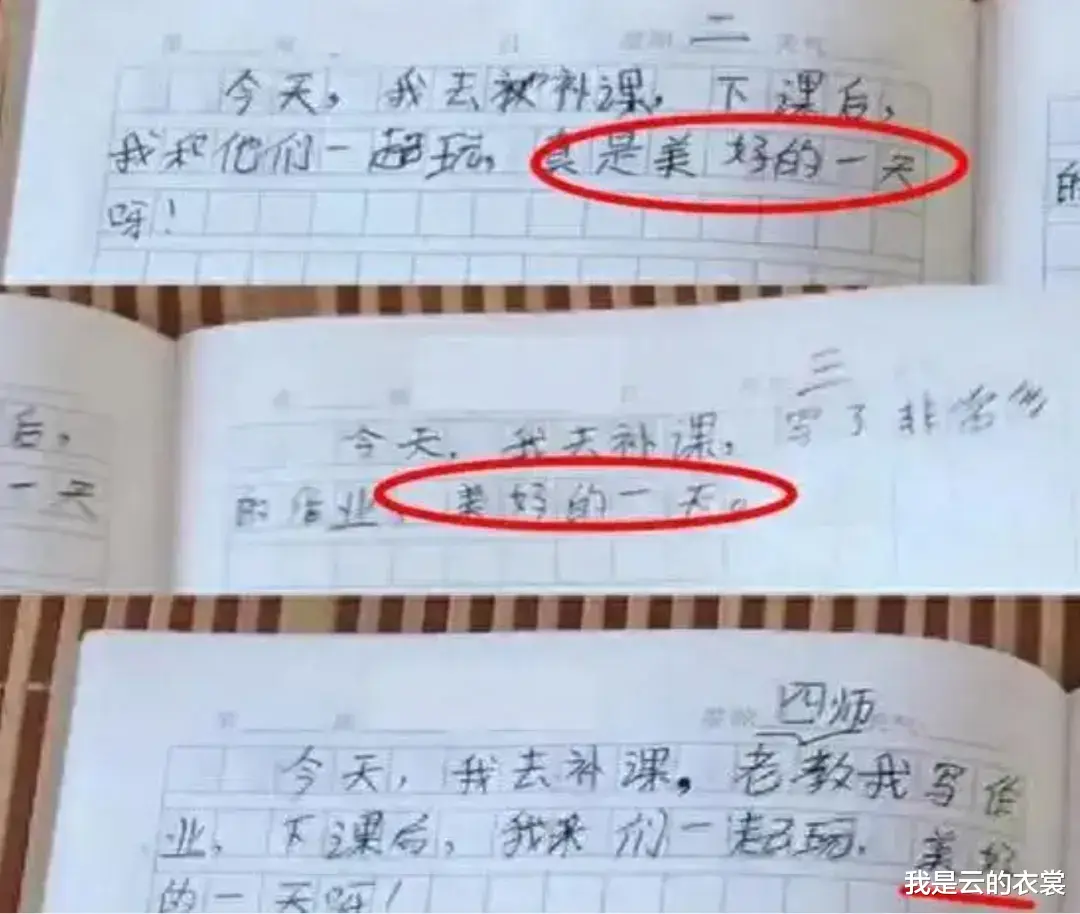 星期 二 天气
今天,我去被补课,下课后,
我和他们一起玩,真是美好的一天
呀!
的
三
后,
今天,我去补课,写了非常多
一天
的作业,美好的一天。
星期 四 师
今天,我去补课,老教我写作
业,下课后,我来们一起玩,美好
的一天呀!
我是云的衣裳